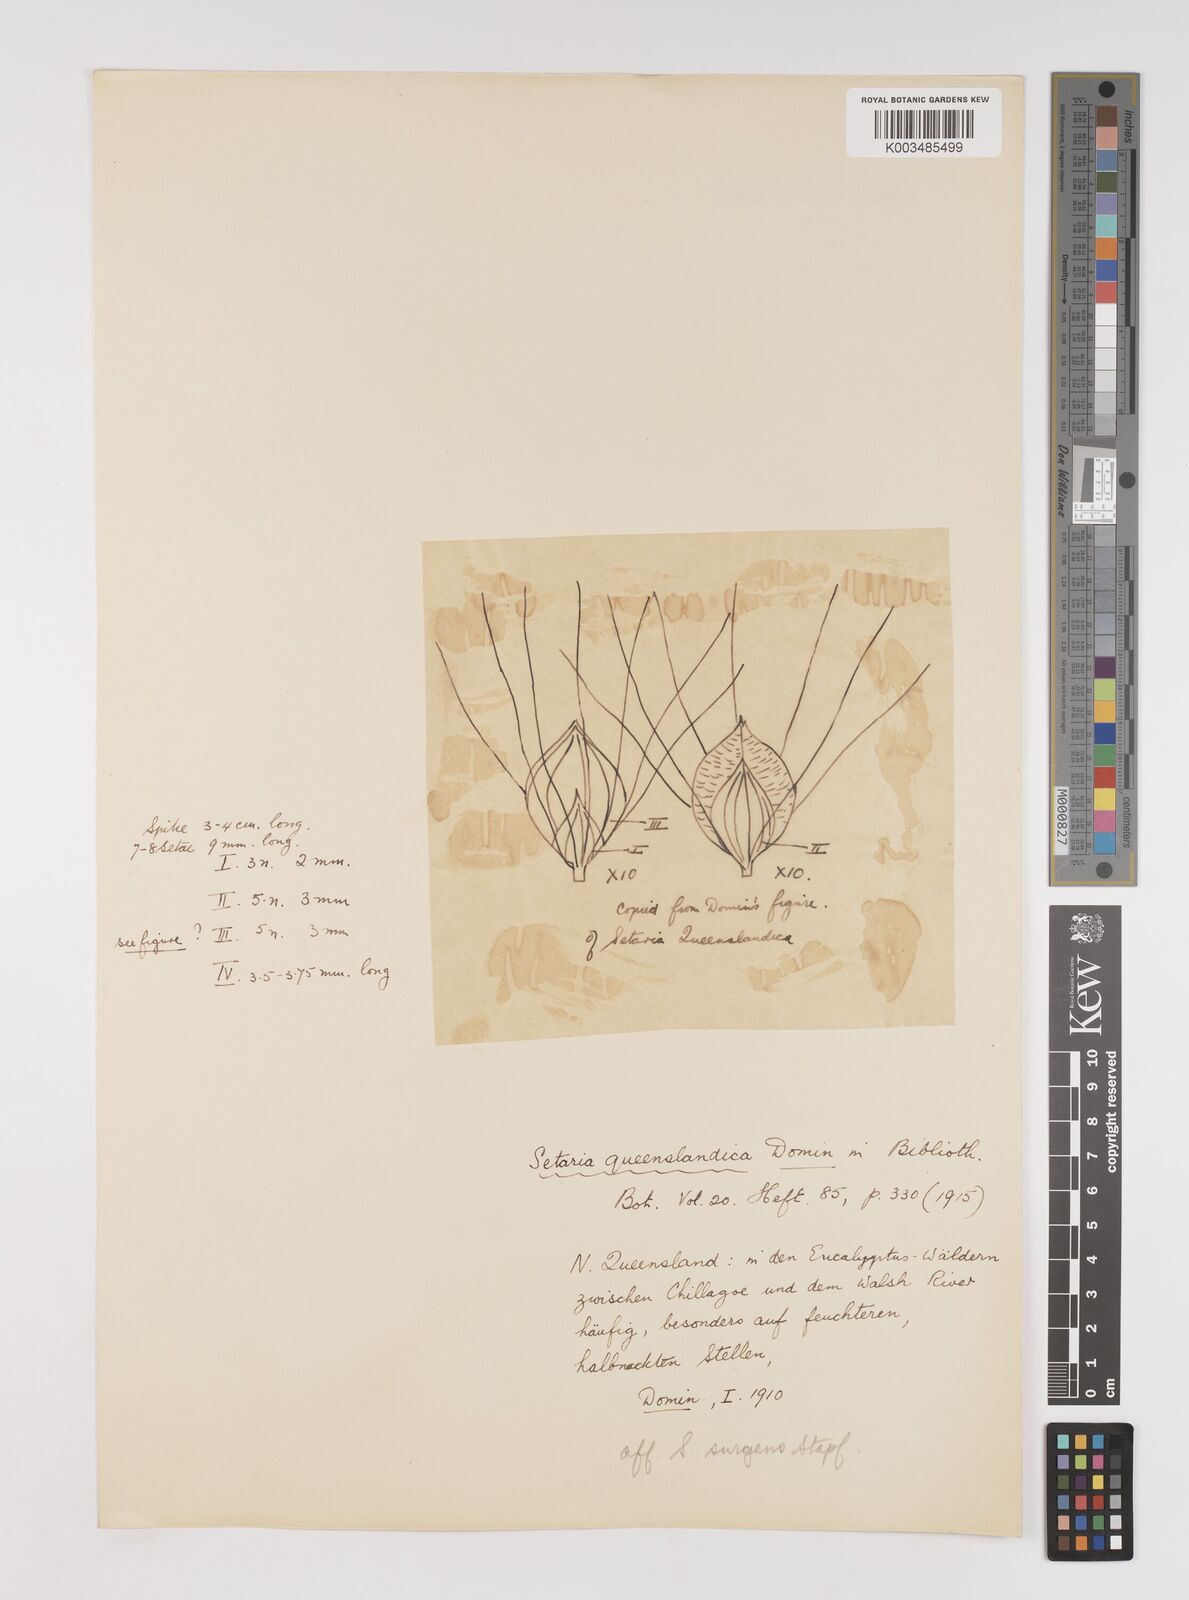 ROYAL BOTANIC GARDENS KEW
K003485499
Spike 3-4 cm. long.
7-8 Setae 9 mm. long.
I. 3n. 2 mm.
II. 5.n. 3 mm
see figure ? III. 5n. 3 mm
IV. 3.5-3.75 mm. long
III
I
II
X10
X10.
Copied from Domin's figure.
of Setaria Queenslandica
Setaria queenslandica Domin in Biblioth.
Bot. Vol. 20. Heft. 85, p. 330 (1915)
N. Queensland : in den Eucalyptus-Wäldern
zwischen Chillagoe und dem Walsh River
häufig, besonders auf feuchteren,
halbnackten Stellen,
Domin, I. 1910
aff. S. surgens Stapf.
inches
centimeters
Density
Don Williams
M000827
Kew
Royal Botanic Gardens
copyright reserved
0 1 2 3 4 5 6 7 8 9 10
cm